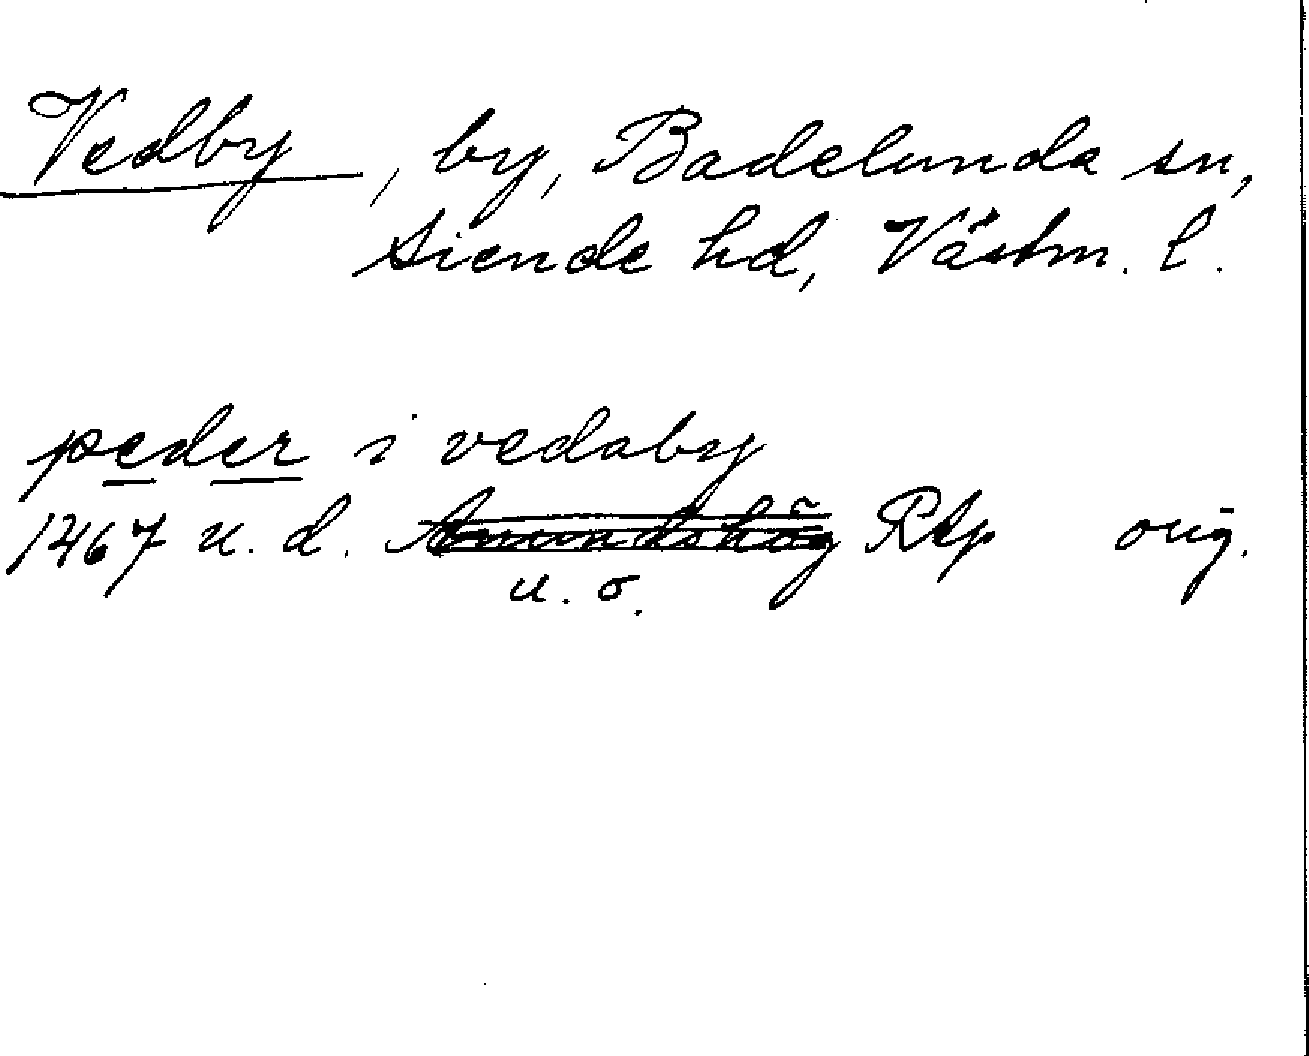 Vedby, by, Badelunda sn,
Siende hd, Västm. l.
peder i vedaby
1467 u. d. Anundshög RAp orig.
u. o.